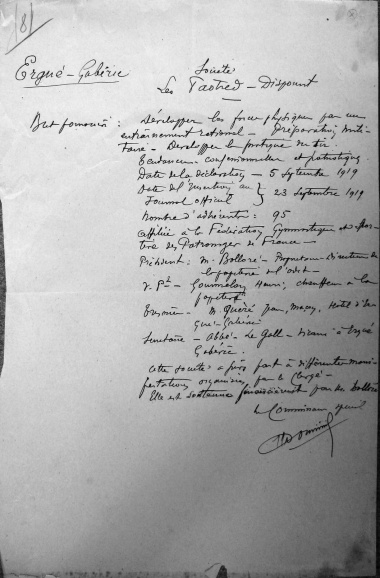 (8)
Ergué-Gabéric
Société
Les Paotred-Dispount
But poursuivi : Développer les forces physiques par un
entraînement rational - Préparation mili-
taire - Développer la pratique du tir
Tendances confessionnelles et patriotiques
Date de la déclaration - 5 Septembre 1919
Date de l'insertion au
Journal officiel } 23 Septembre 1919
Nombre d'adhérents : 95
Affiliée à la Fédération Gymnastique et spor-
tive des Patronages de France -
Président : M. Bolloré - Propriétaire-Directeur de
la papeterie de l'Odet -
V. Pt - Gourmelon Henri, chauffeur à la
papeterie
Trésorier - M. Quéré Jean, maçon, Hotel d'Er-
gué-Gabéric
Secrétaire - Abbé - Le Gall - vicaire à Ergué
Gabéric.
Cette société a pris part à différentes mani-
festations organisées par le Clergé -
Elle est soutenue financièrement par M. Bolloré
Le Commissaire spécial